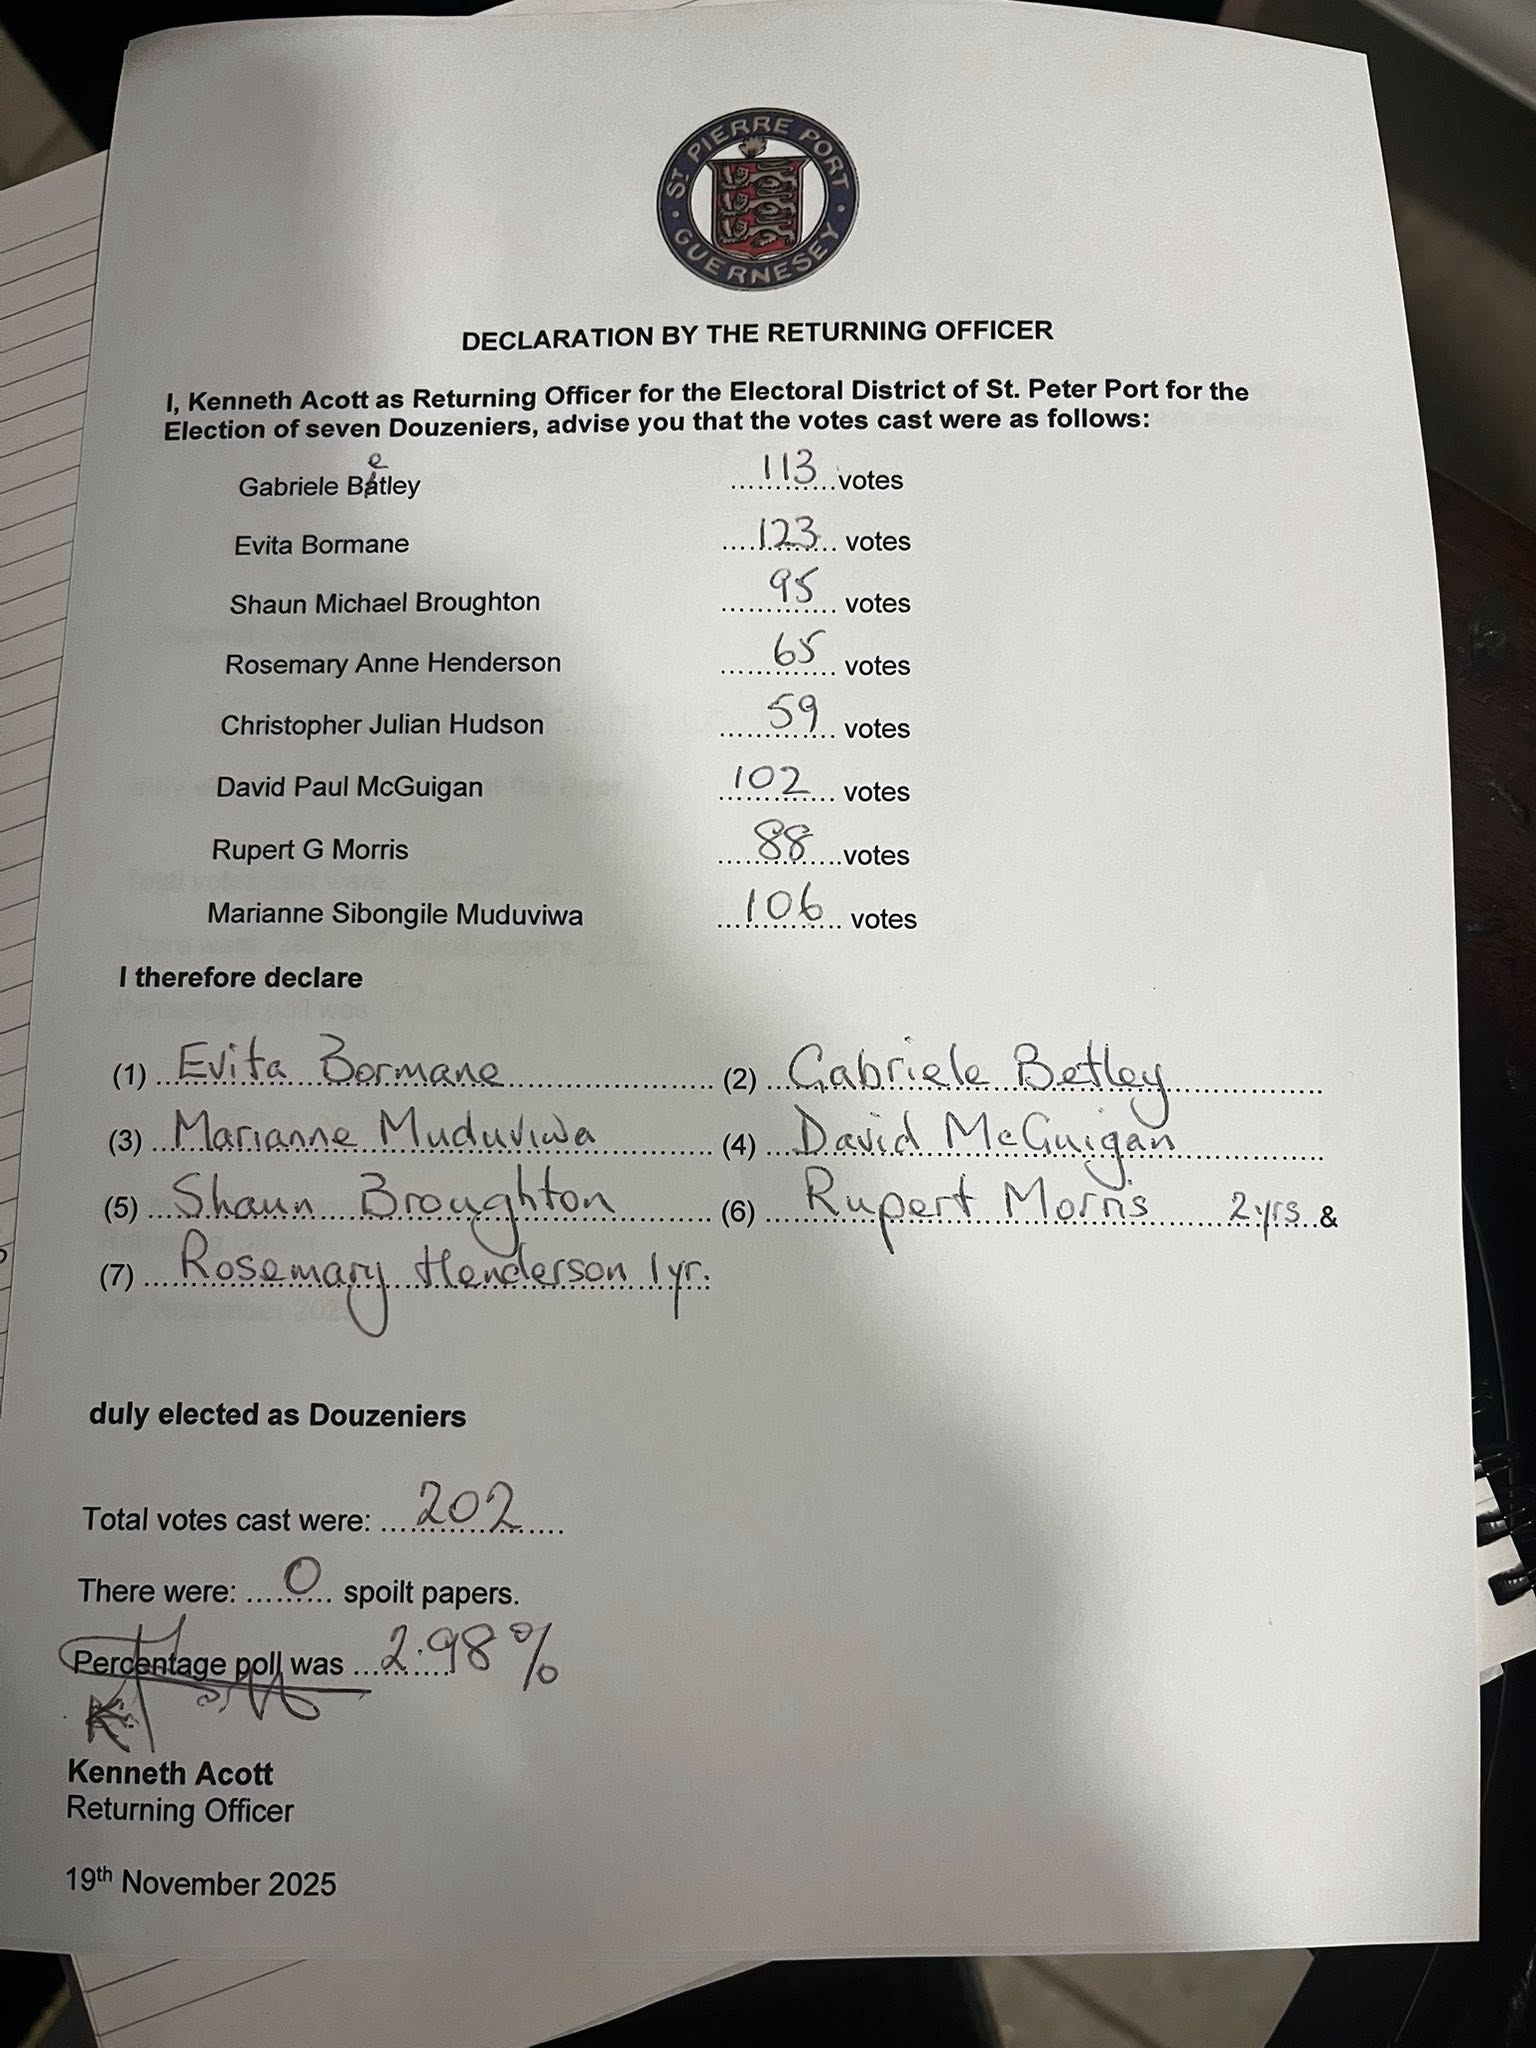 ST PIERRE PORT
GUERNESEY
DECLARATION BY THE RETURNING OFFICER
I, Kenneth Acott as Returning Officer for the Electoral District of St. Peter Port for the
Election of seven Douzeniers, advise you that the votes cast were as follows:
e
Gabriele Batley ............113............votes
Evita Bormane ............123............ votes
Shaun Michael Broughton ............95............ votes
Rosemary Anne Henderson ............65............ votes
Christopher Julian Hudson ............59............ votes
David Paul McGuigan ............102............ votes
Rupert G Morris ............88............votes
Marianne Sibongile Muduviwa ............106............ votes
I therefore declare
(1) Evita Bormane (2) Gabriele Betley
(3) Marianne Muduviwa (4) David McGuigan
(5) Shaun Broughton (6) Rupert Morris 2yrs &
(7) Rosemary Henderson 1yr.
duly elected as Douzeniers
Total votes cast were: 202
There were: 0 spoilt papers.
Percentage poll was 2.98%
Kenneth Acott
Returning Officer
19th November 2025